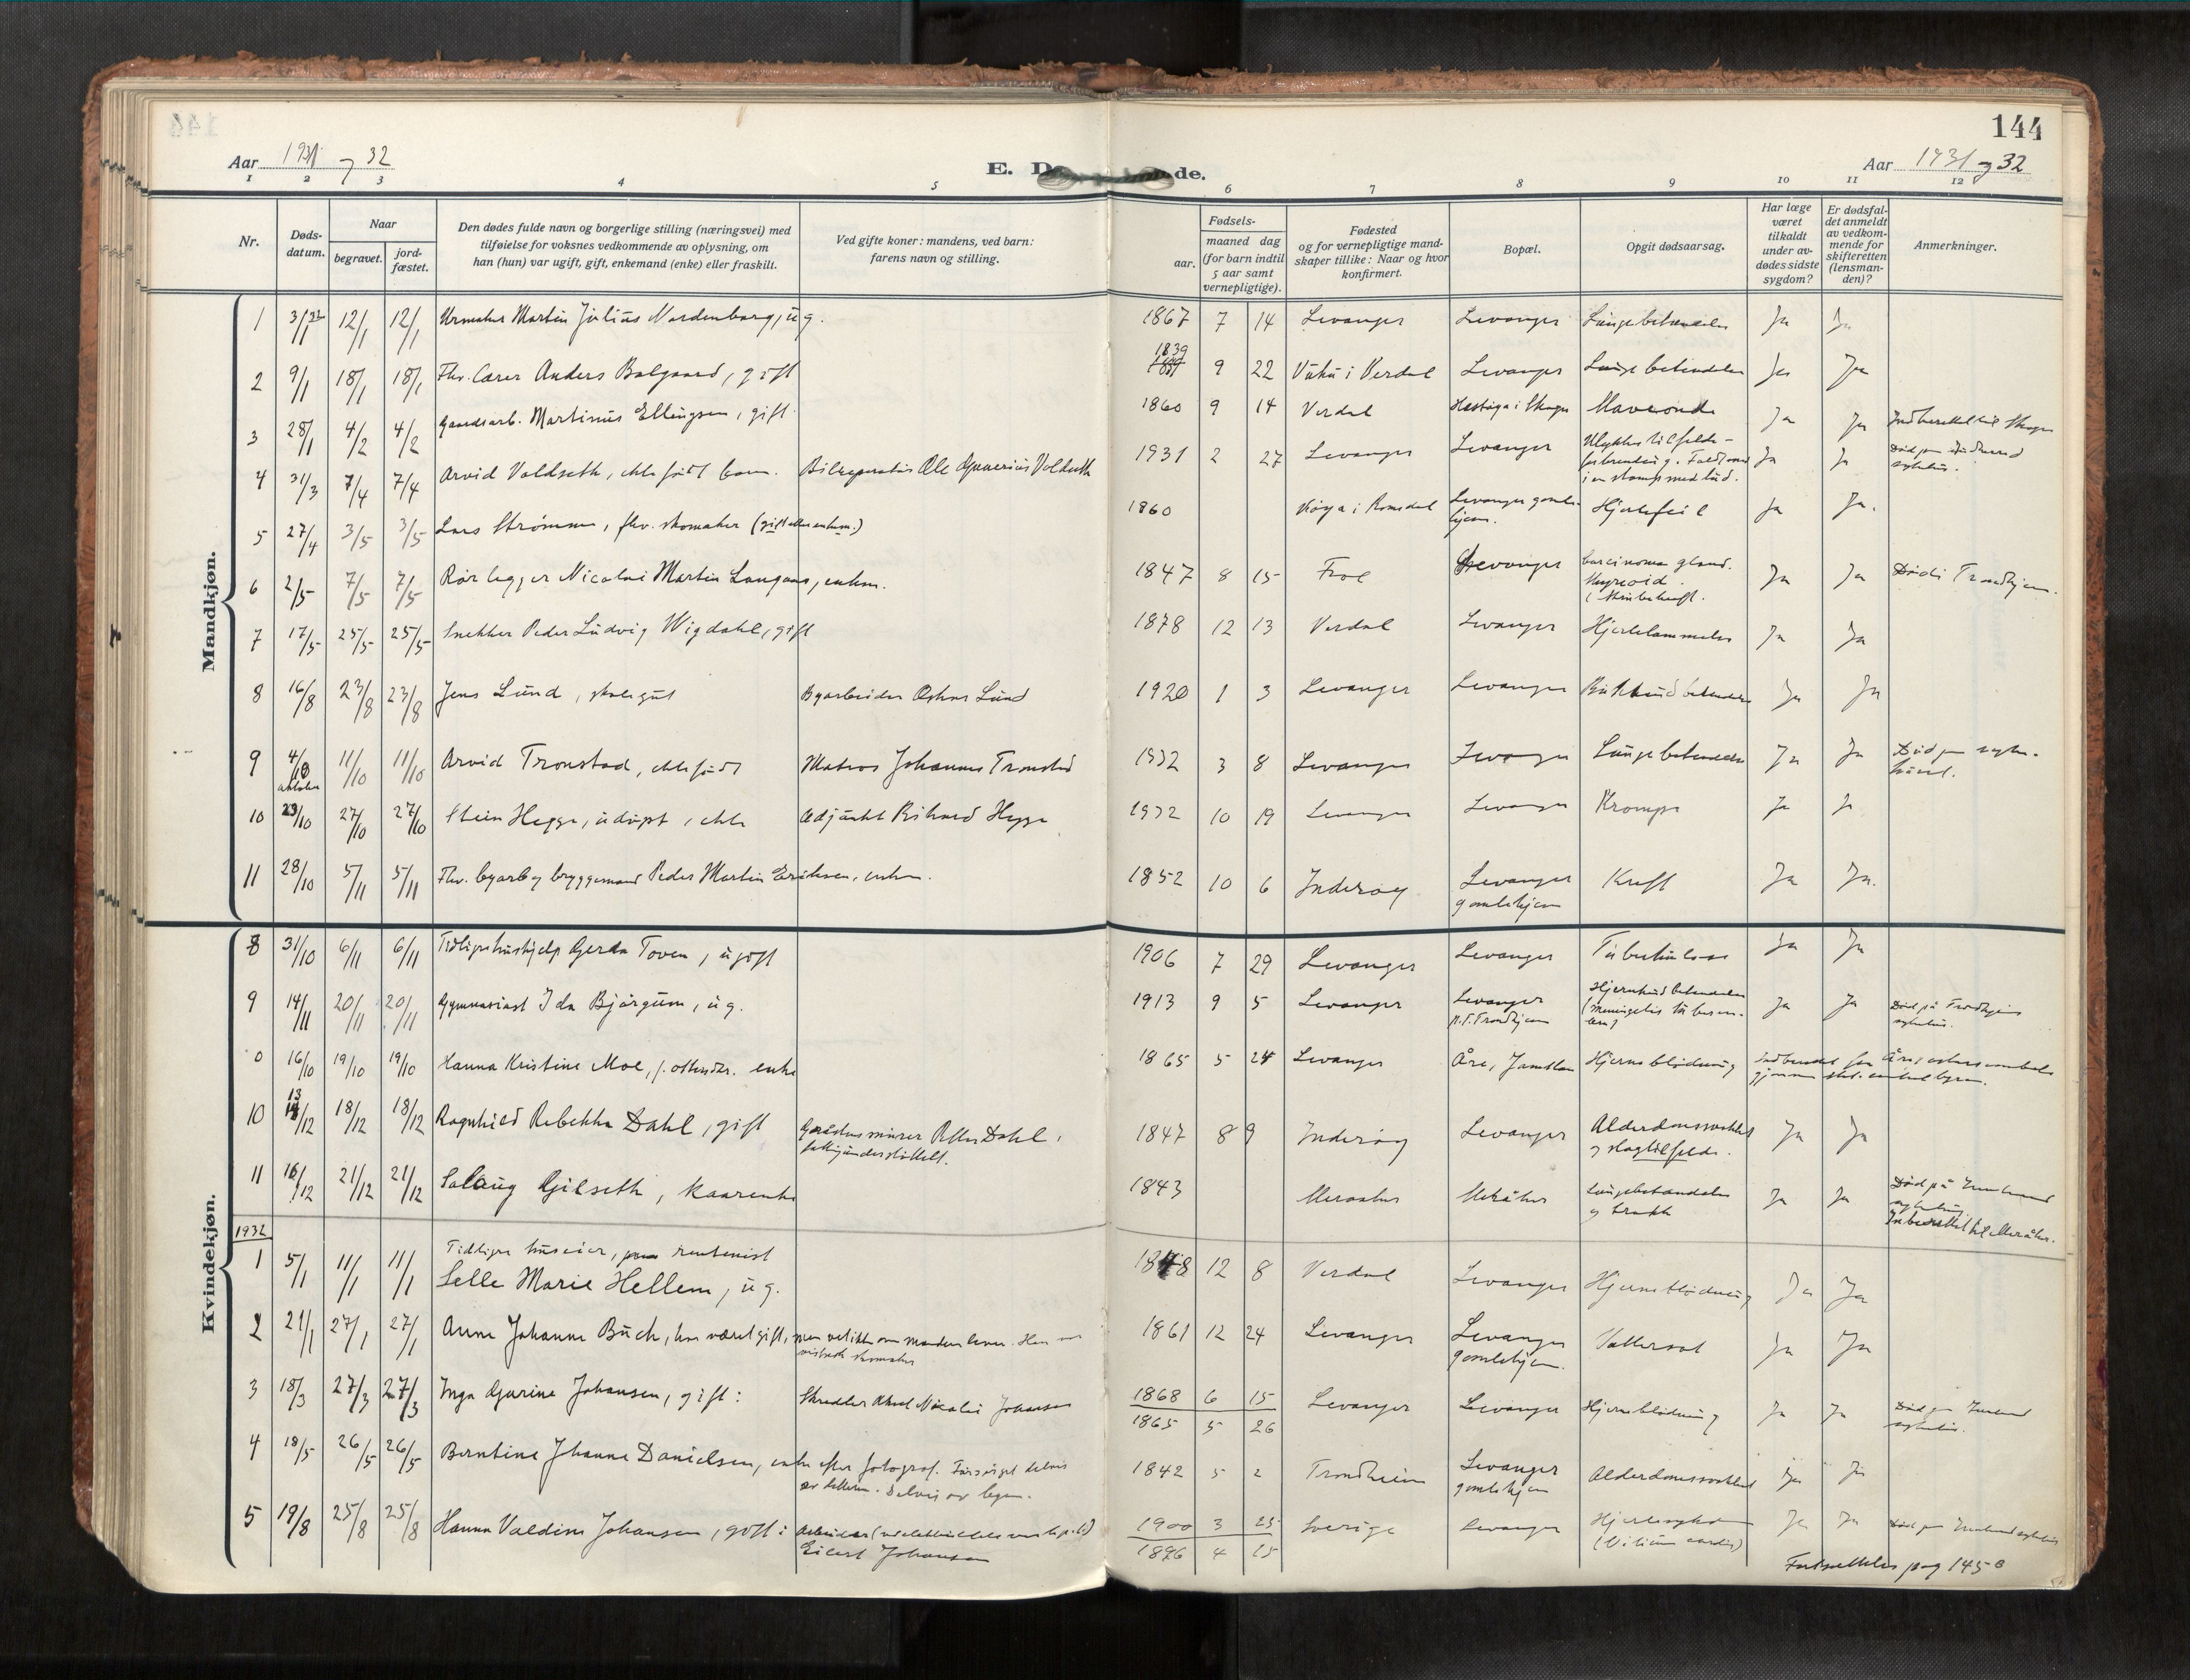 144
Aar 1931 og 32
E. D de.
Aar 1931 og 32
1 2 3 4 5 6 7 8 9 10 11 12
Nr.
Døds-
datum.
Naar
begravet.
jord-
fæstet.
Den dødes fulde navn og borgerlige stilling (næringsvei) med
tilføielse for voksnes vedkommende av oplysning, om
han (hun) var ugift, gift, enkemand (enke) eller fraskilt.
Ved gifte koner: mandens, ved barn:
farens navn og stilling.
Fødsels-
aar.
maaned dag
(for barn indtil
5 aar samt
vernepligtige).
Fødested
og for vernepligtige mand-
skaper tillike: Naar og hvor
konfirmert.
Bopæl.
Opgit dødsaarsag.
Har læge
været
tilkaldt
under av-
dødes sidste
sygdom?
Er dødsfal-
det anmeldt
av vedkom-
mende for
skifteretten
(lensman-
den)?
Anmerkninger.
Mandkjøn.
1 3/1 32 12/1 12/1 Urmaker Martin Julius Nordenborg, ug. 1867 7 14 Levanger Levanger Lungebetændelse Ja Ja
2 9/1 18/1 18/1 Fhv. Anders Balgaard, gift 1839 9 22 Vuku i Verdal Levanger Lungebetendelse Ja Ja
3 28/1 4/2 4/2 Gaardsarb. Martinus Ellingsen, gift 1860 9 14 Verdal i Skogn Maveonde Ja Ja Indberettet til Skogn
4 31/3 7/4 7/4 Arvid Voldseth, ekte født barn. Ole Voldseth 1931 2 27 Levanger Levanger Ulykkestilfelde -
forbrending. Faldt
i en stamp med lud. Ja Ja Død på Innherred
sykehus.
5 27/4 3/5 3/5 Lars Strømmen, fhv. skomaker (gift eller enkem.) 1860 i Romsdal Levanger gamle-
hjem. Hjertefeil Ja Ja.
6 2/5 7/5 7/5 Rørlegger Nicolai Martin Langaas, enkem. 1847 8 15 Frol Levanger Carcinoma gland.
thyreoid.
(Strubekreft. Ja Ja Død i Trondhjem.
7 17/5 25/5 25/5 Snekker Peder Ludvig Wigdahl, gift 1878 12 13 Verdal Levanger Hjertelammelse Ja Ja
8 16/8 23/8 23/8 Jens Lund, skolegut Byarbeider Oskar Lund 1920 1 3 Levanger Levanger Bukhindebetendelse Ja Ja
9 4/10
oktober 11/10 11/10 Arvid Tronstad, ekte født Matros Johannes Tronstad 1932 3 8 Levanger Levanger Lungebetendelse Ja Ja Død på syke-
huset.
10 23/10 27/10 27/10 Stein Hegge, udøpt, ekte Adjunkt Rikard Hegge 1932 10 19 Levanger Levanger Krampe Ja Ja
11 28/10 5/11 5/11 Fhv. byarb. og bryggemand Peder Martin Eriksen, enkem. 1852 10 6 Inderøy Levanger
gamlehjem Kreft Ja Ja.
Kvindekjøn.
8 31/10 6/11 6/11 Tidligere hushjelp Gerda Toven, ugift 1906 7 29 Levanger Levanger Tuberkulose Ja Ja
9 14/11 20/11 20/11 Gymnasiast Ida Bjørgum, ug. 1913 9 5 Levanger Levanger
p.t. Trondhjem Hjernehindebetendelse
(Meningitis Ja Ja Død på Trondhjems
sykehus.
0 16/10 19/10 19/10 Hanna Kristine Moe, f. enke 1865 5 24 Levanger Åre, Jämtland Hjerneblødning Indberettet fra Åre
gjennem stat.
10 13/12 18/12 18/12 Ragnhild Rebekka Dahl, gift Dahl,
fattigunderstøttet. 1847 8 9 Inderøy Levanger Alderdomssvakhet
og slagtilfelde. Ja Ja
11 16/12 21/12 21/12 Salaug Gilseth, kaarenke 1843 Meraaker Meråker Lungebetændelse
og Ja Ja Død på Innherred
sykehus.
Inberettet til Meråker.
1932
1 5/1 11/1 11/1 Tidligere huseier, rentenist
Selle Marie Hellem, ug. 1848 12 8 Verdal Levanger Hjerneblødning Ja Ja
2 21/1 27/1 27/1 Anne Johanne Buch, har været gift, men vet ikke om manden lever. Han var
visstnok skomaker 1861 12 24 Levanger Levanger
gamlehjem. Vattersot Ja Ja
3 18/3 27/3 27/3 Inga Gurine Johansen, gift: Skredder Nicolai Johansen 1868 6 15 Levanger Levanger Hjerneblødning Ja Ja Død på Innherred
sykehus.
1865 5 26
4 18/5 26/5 26/5 Berntine Johanna Danielsen, enke efter fotograf. Forsørget delvis
av datteren. Delvis av byen. 1842 5 2 Trondheim Levanger
gamlehjem Alderdomssvakhet Ja Ja
5 19/8 25/8 25/8 Hanna Valdine Johansen, gift: Arbeider
Eilert Johansen 1900 3 25 Sverige Levanger Hjertesykdom
(Vitium cordis) Ja Ja Død på Innherred sykehus
1896 4 15
Fortsettelse pag 145 B